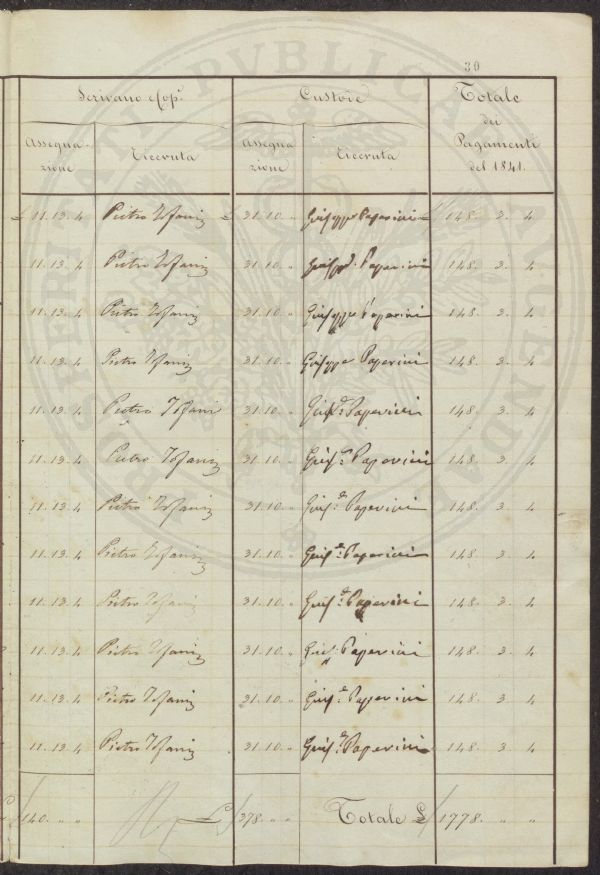 30
Scrivano e Cop.^e Custode Totale
dei
Pagamenti
del 1841.
Assegna- Ricevuta Assegna Ricevuta
zione zione
£ 11. 13. 4 Pietro Tofani £ 31. 10. " Giuseppe Paperini £ 148. 3. 4
11. 13. 4 Pietro Tofani 31. 10. " Giuseppe Paperini 148. 3. 4
11. 13. 4 Pietro Tofani 31. 10. " Giuseppe Paperini 148. 3. 4
11. 13. 4 Pietro Tofani 31. 10. " Giuseppe Paperini 148. 3. 4
11. 13. 4 Pietro Tofani 31. 10. " Gius.e Paperini 148. 3. 4
11. 13. 4 Pietro Tofani 31. 10. " Gius.e Paperini 148. 3. 4
11. 13. 4 Pietro Tofani 31. 10. " Gius.e Paperini 148. 3. 4
11. 13. 4 Pietro Tofani 31. 10. " Gius.e Paperini 148. 3. 4
11. 13. 4 Pietro Tofani 31. 10. " Gius.e Paperini 148. 3. 4
11. 13. 4 Pietro Tofani 31. 10. " Gius. Paperini 148. 3. 4
11. 13. 4 Pietro Tofani 31. 10. " Gius.e Paperini 148. 3. 4
11. 13. 4 Pietro Tofani 31. 10. " Gius.e Paperini 148. 3. 4
£ 140. " " £ 378. " " Totale £ 1778. " "